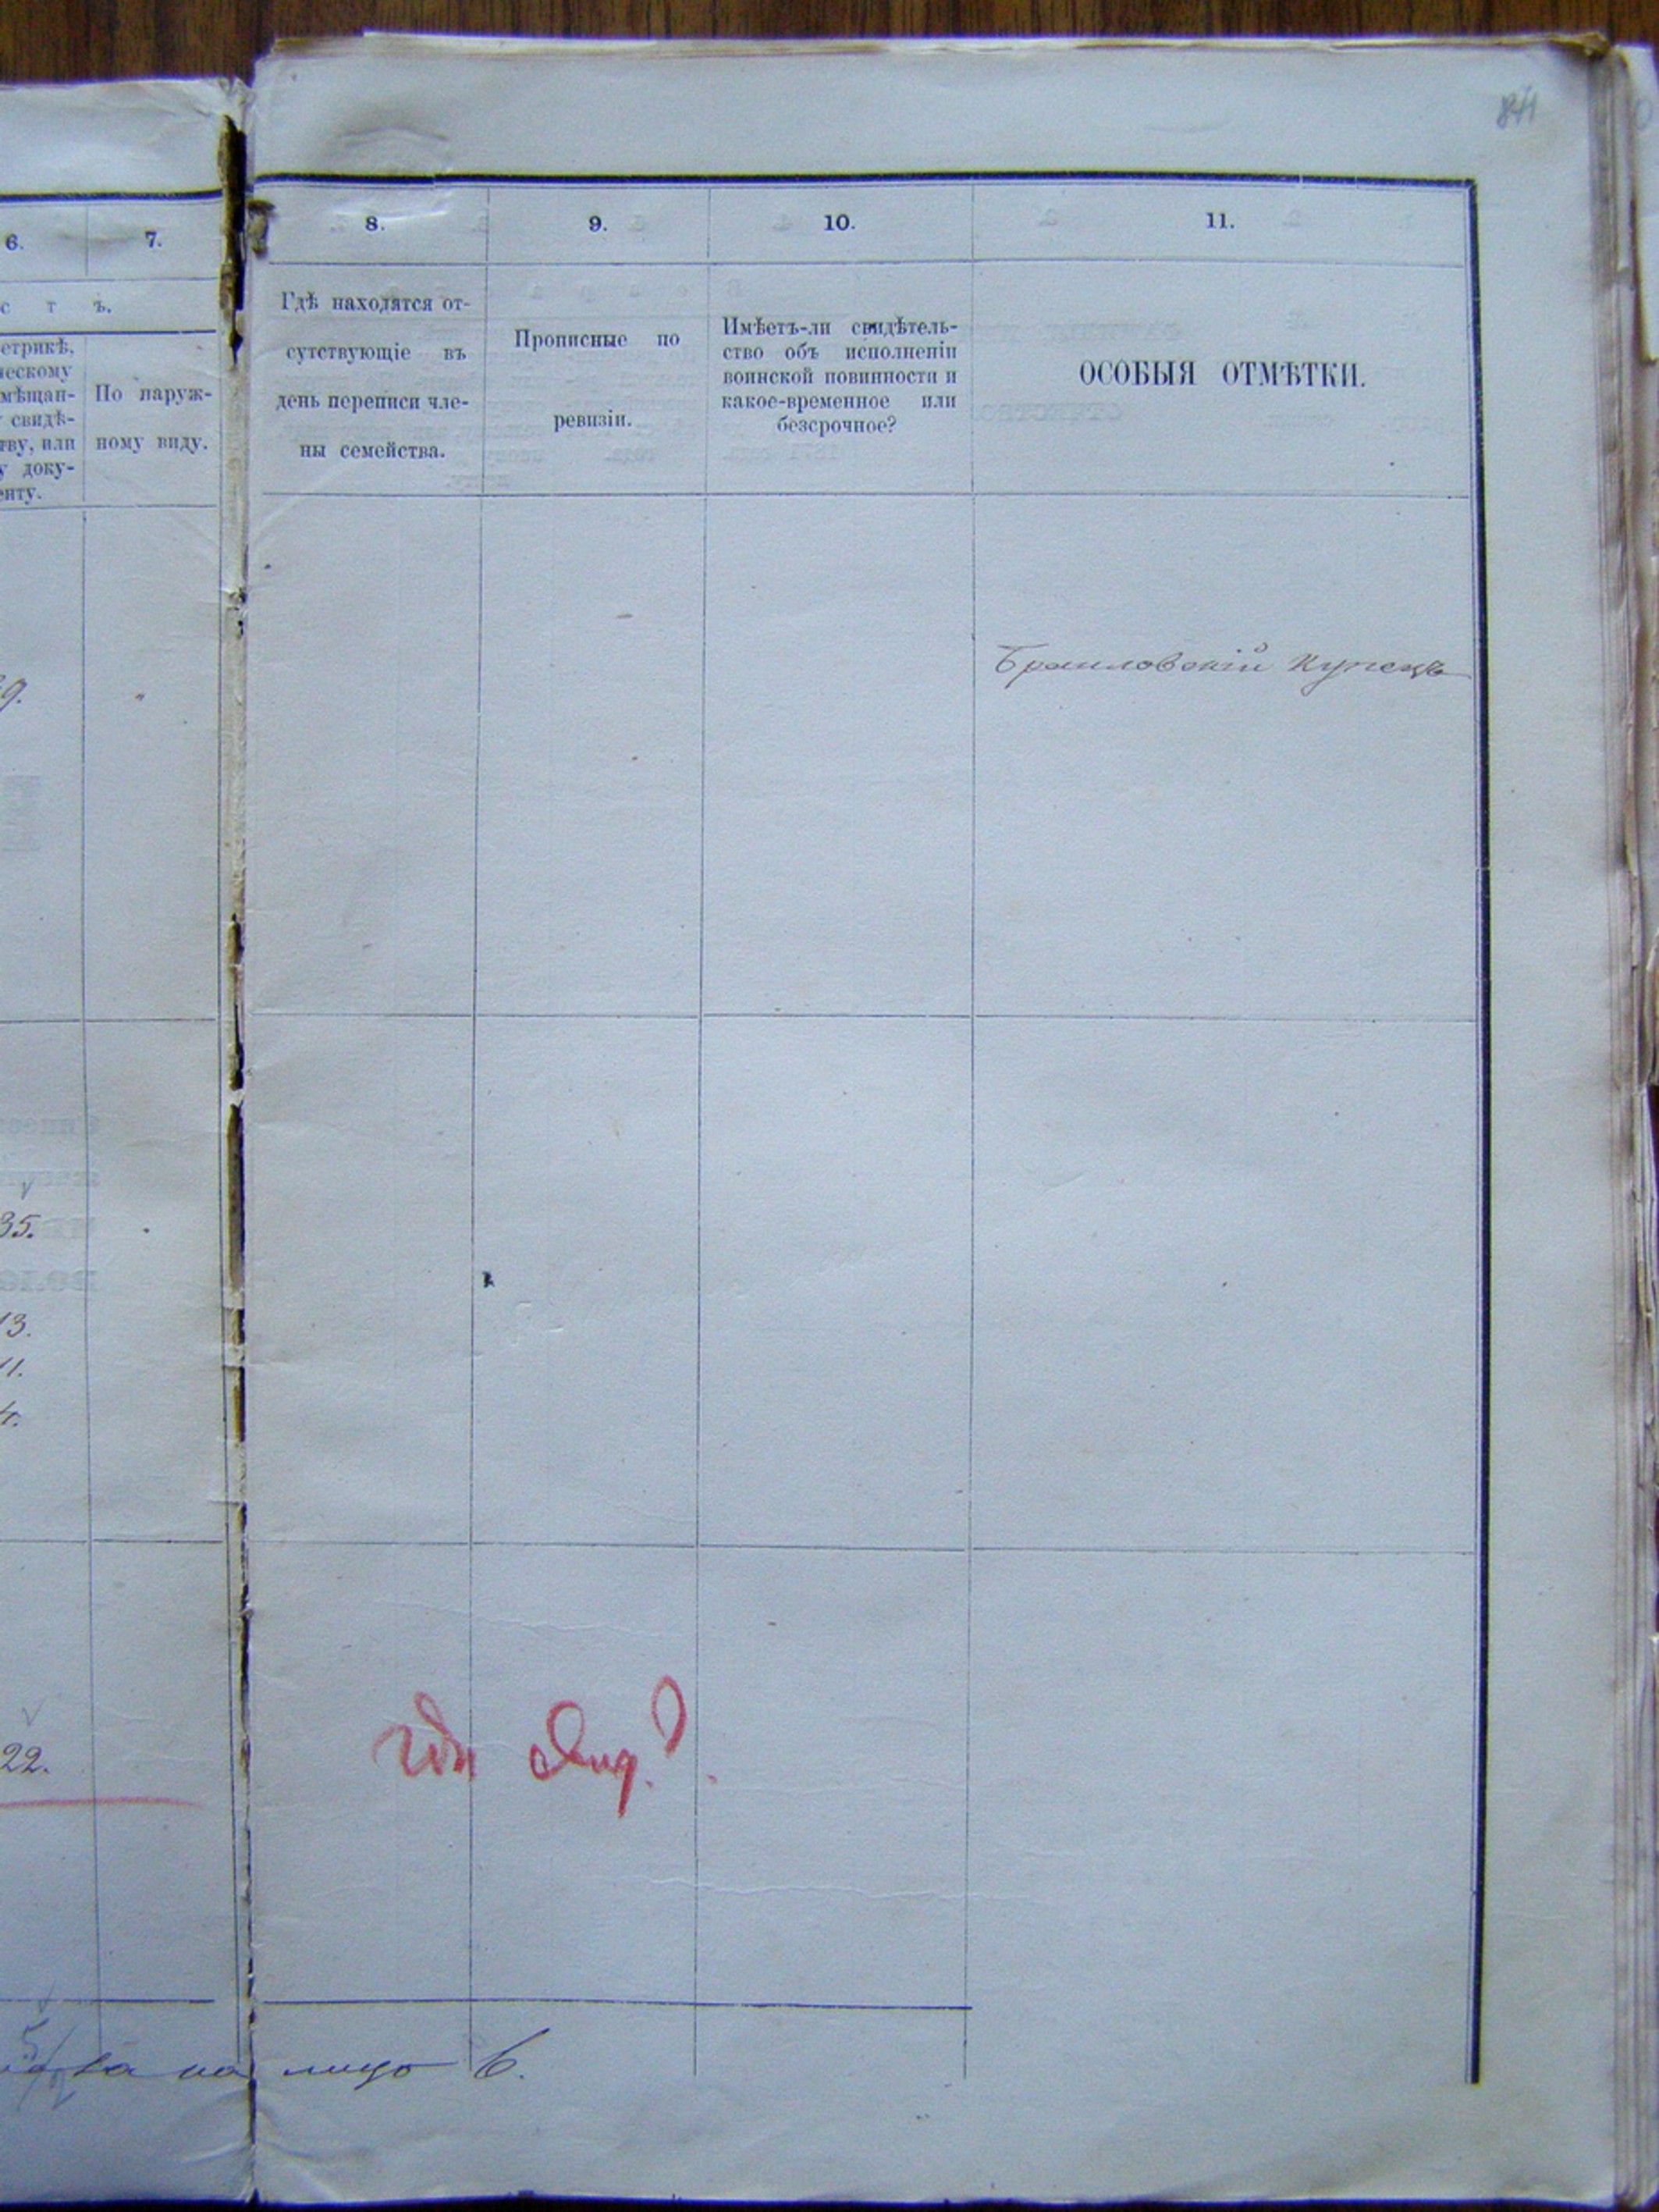 841
6.
7.
8.
9.
10.
11.
с т ъ.
етрикѣ,
ческому
мѣщан-
свидѣ-
тву, или
у доку-
енту.
По наруж-
ному виду.
Гдѣ находятся от-
сутствующіе въ
день переписи чле-
ны семейства.
Прописные по
ревизіи.
Имѣетъ-ли свидѣтель-
ство объ исполненіи
воинской повинности и
какое-временное или
безсрочное?
ОСОБЫЯ ОТМѢТКИ.
9.
Браиловскій Купецъ
35.
13.
11.
4.
22.
гдѣ
на лицо 6.